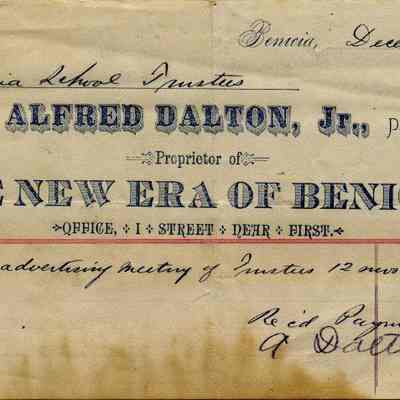 Benicia, Dece
ia School Trustees
ALFRED DALTON, Jr.,
Proprietor of
E NEW ERA OF BENIC
OFFICE, I STREET NEAR FIRST.
advertising meeting of Trustees 12 mos
Rec'd Paym
A Dalt